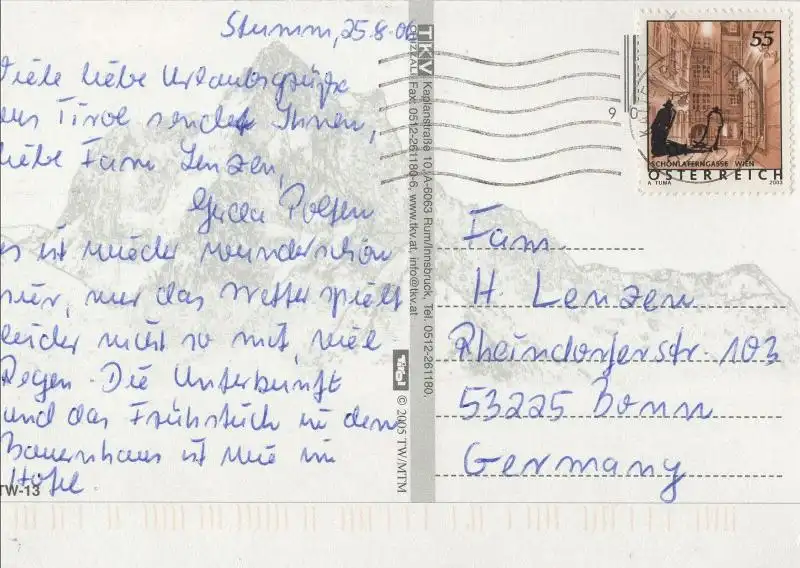 Stumm, 25.8.06
Viele liebe Urlaubsgrüße
aus Tirol sendet Ihnen,
liebe Fam. Lenzen,
Gerda
es ist wieder wunderschön
hier, nur das Wetter spielt
leider nicht so mit, viel
Regen. Die Unterkunft
und das Frühstück in dem
Bauernhaus ist wie im
Hotel.
TW-13
TKV
Kaplanstraße 10, A-6063 Rum/Innsbruck, Tel. 0512-261180,
Fax: 0512-261180-6, www.tkv.at, info@tkv.at
Tirol
© 2005 TW/MTM
55
SCHÖNLATERNGASSE WIEN
ÖSTERREICH
A. TUMA
2003
Fam.
H. Lenzen
Rheindorferstr. 103
53225 Bonn
Germany